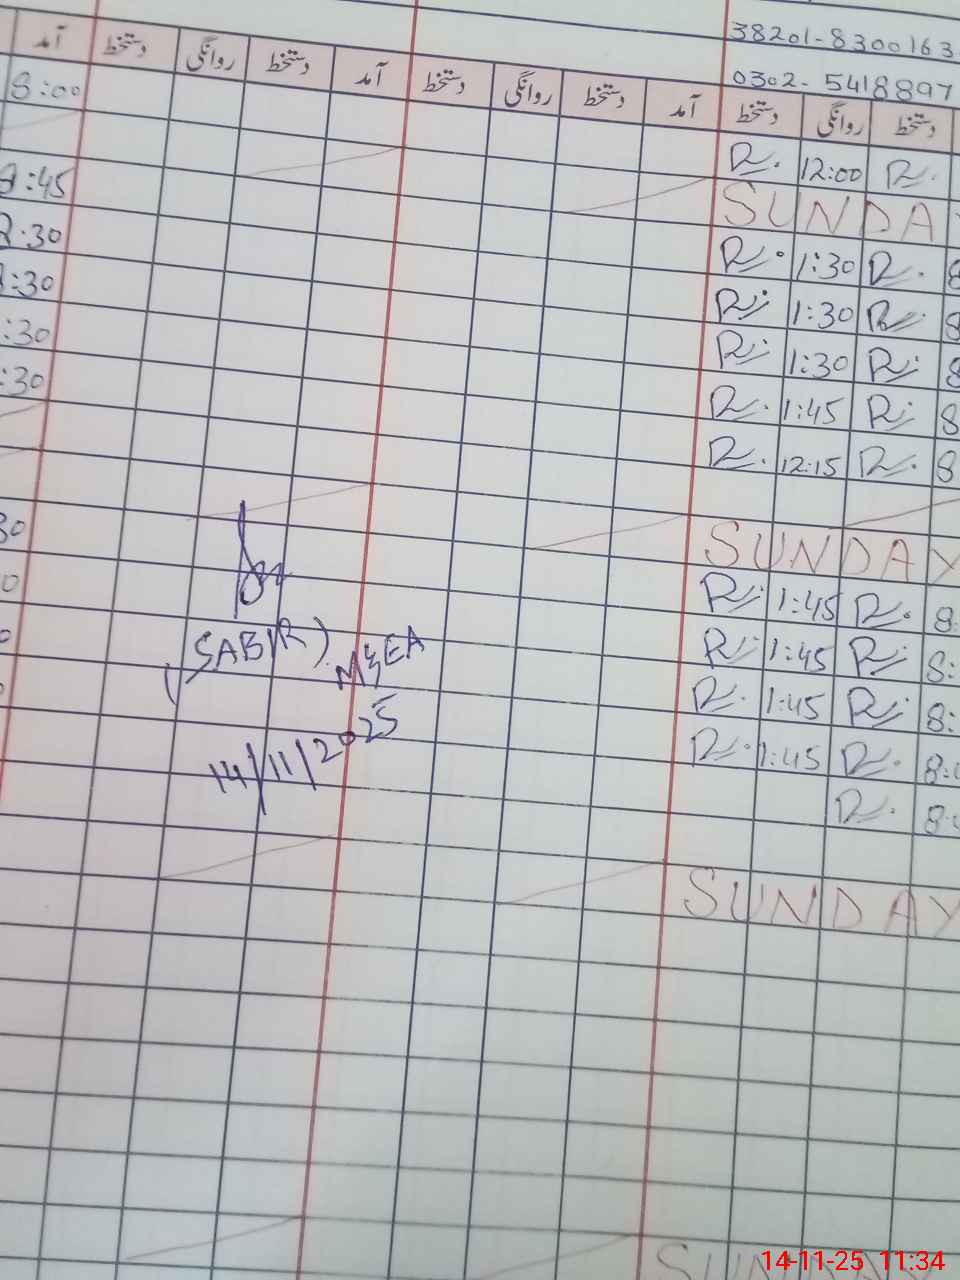 38201-8300163
0302-5418897
آمد دستخط روانگی دستخط آمد دستخط روانگی دستخط آمد دستخط روانگی دستخط
8:00
12:00
SUNDAY
:45
1:30 8
:30
1:30 8
:30
1:30 8
:30
1:45 8
:30
12:15 8
SUNDAY
30
1:45 8:
(SABIR) M&EA
1:45 8:
14/11/2025
1:45 8:
1:45 8:0
8:0
SUNDAY
SUN
14-11-25 11:34